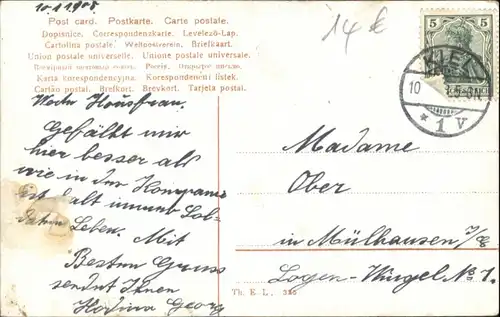 10.1.1908
Post card. Postkarte. Carte postale.
Dopisnice. Correspondenzkarte. Levelező-Lap.
Cartolina postale. Weltpostverein. Briefkaart.
Union postale universelle. Unione postale universale.
Всемірный почтовый союзъ. Россія. Открытое письмо.
Karta korespondencyjna. Korespondenční lístek.
Cartão postal. Brefkort. Brevkort. Tarjeta postal.
14 €
5 5
KIEL
10
* 1 V
Hausfrau.
Gefällt mir
hier besser als
wie in der Kompanie
ist halt immer Sol-
daten Leben. Mit
Besten Gruss
sendet Ihnen
Georg
Madame
Ober
in Mülhausen i/E
Logen-Wingel No 1.
Th. E. L.